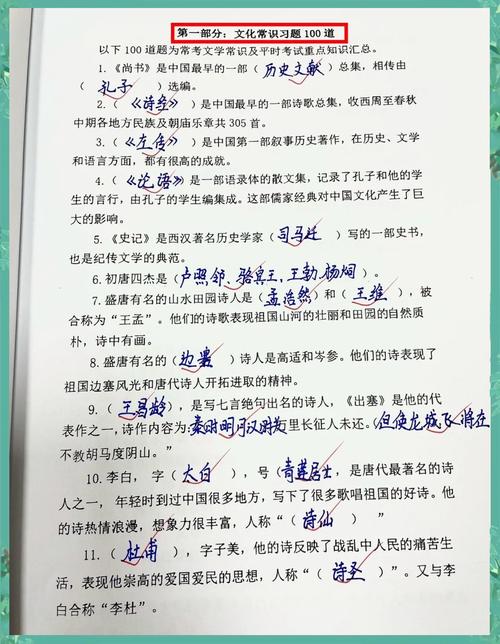 第一部分：文化常识习题 100 道
以下 100 道题为常考文学常识及平时考试重点知识汇总。
1.《尚书》是中国最早的一部（历史文献）总集，相传由
（孔子）选编。
2.（《诗经》）是中国最早的一部诗歌总集，收西周至春秋
中期各地方民族及朝庙乐章共 305 首。
3.（《左传》）是中国第一部叙事历史著作，在历史、文学
和语言方面，都有很高的成就。
4.（《论语》）是一部语录体的散文集，记录了孔子和他的学
生的言行，由孔子的学生编集成。这部儒家经典对中国文化产生了巨
大的影响。
5.《史记》是西汉著名历史学家（司马迁）写的一部史书，
也是纪传文学的典范。
6. 初唐四杰是（卢照邻、骆宾王、王勃、杨炯）。
7. 盛唐有名的山水田园诗人是（孟浩然）和（王维），被
合称为“王孟”。他们的诗歌表现祖国山河的壮丽和田园的自然质
朴，诗中有画。
8. 盛唐有名的（边塞）诗人是高适和岑参。他们的诗表现了
祖国边塞风光和唐代诗人开拓进取的精神。
9.（王昌龄），是写七言绝句出名的诗人，《出塞》是他的代
表作之一，诗作内容为：秦时明月汉时关里长征人未还。（但使龙城飞将在
不教胡马度阴山。”
10. 李白，字（太白），号（青莲居士），是唐代最著名的诗
人之一，年轻时到过中国很多地方，写下了很多歌唱祖国的好诗。他
的诗热情浪漫，想象力很丰富，人称“（诗仙）”
11.（杜甫），字子美，他的诗反映了战乱中人民的痛苦生
活，表现他崇高的爱国爱民的思想，人称“（诗圣）”。又与李
白合称“李杜”。